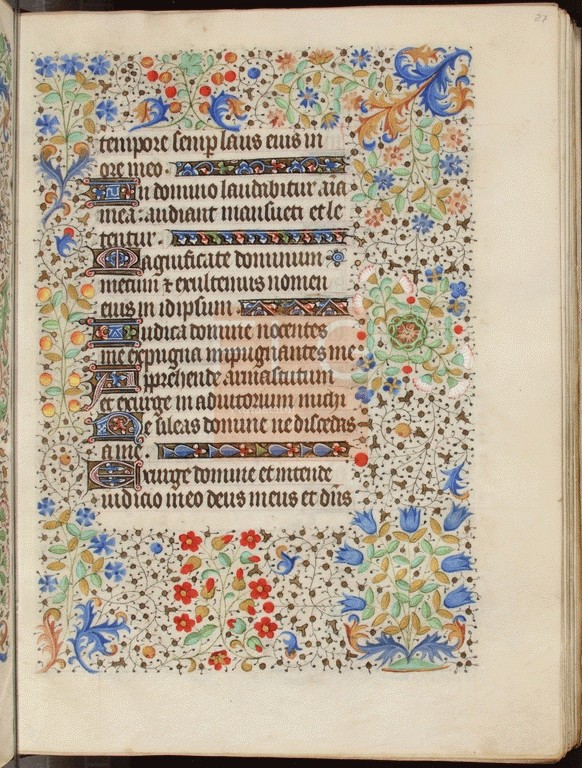 27
tempore semp laus eius in
ore meo.
In domino laudabitur aīa
mea: audiant mansueti et le
tentur.
Magnificate dominum
mecum ⁊ exultemus nomen
eius in idipsum.
Iudica domine nocentes
me expugna impugnantes me
Apprehende arma scutum
et exurge in adiutorium michi
Ne sileas domine ne discedas
a me.
Exurge domine et intende
iudicio meo deus meus et dn̄s